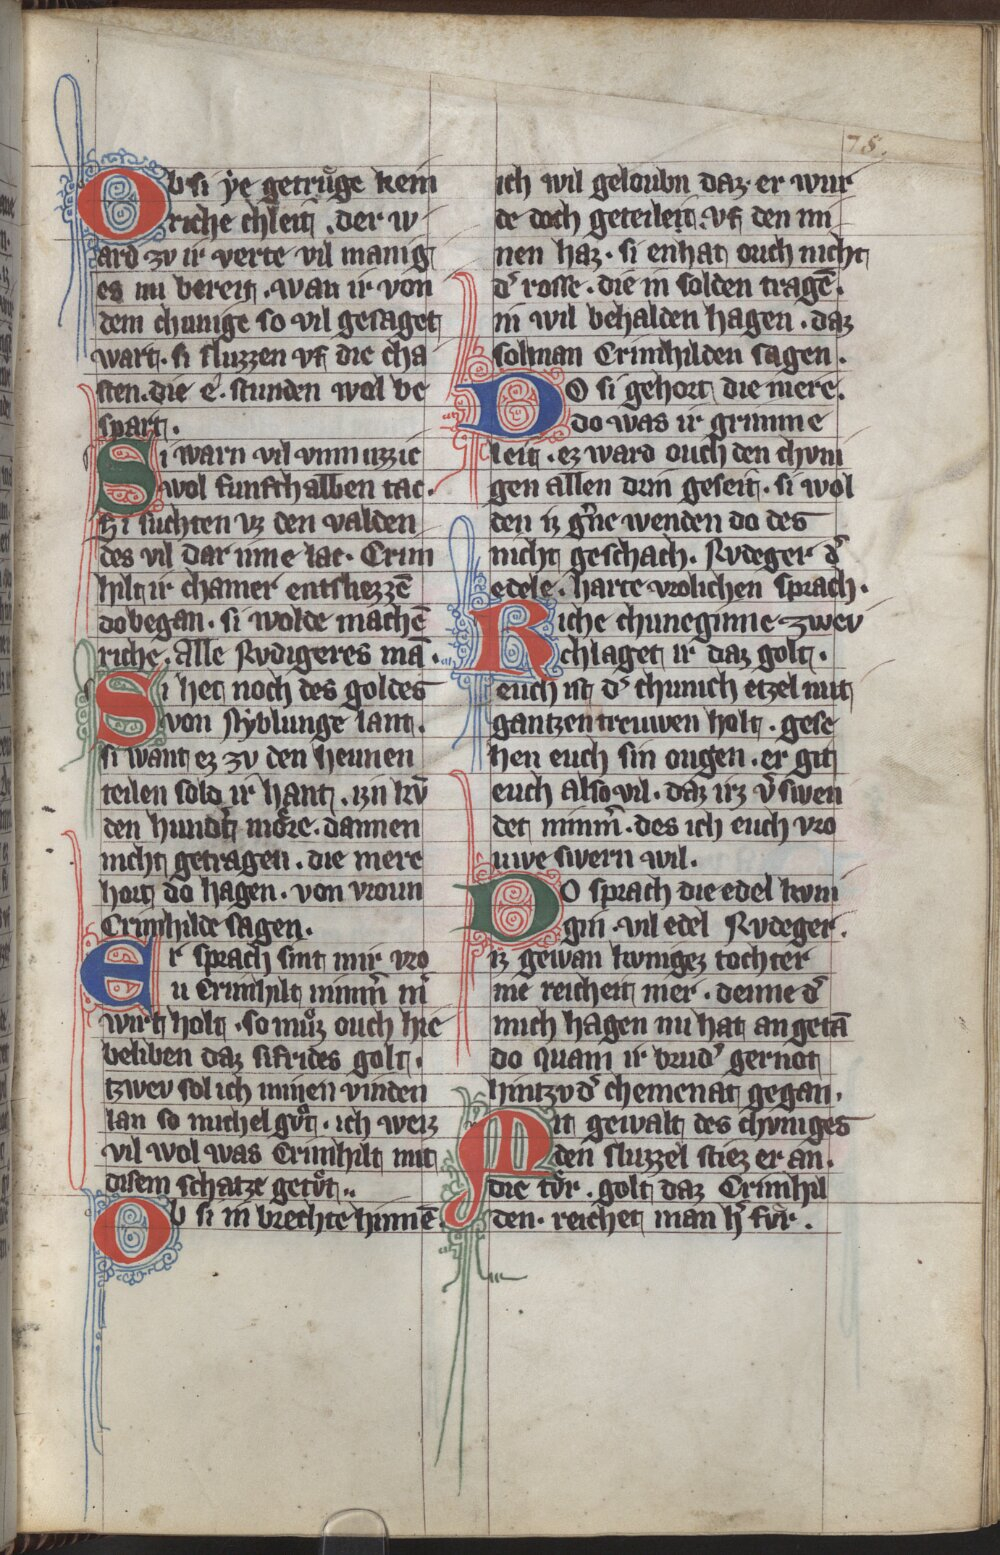 75.
Ob si ẏe getrůge kein
riche chleit . der w
ard zv ir verte vil manig
es nu bereit . wan ir von
dem chunige so vil gesaget
wart . si sluzzen vf die cha
sten . die e . stunden wol be
spart .
Si warn vil vnmuzzic
wol funfthalben tac .
Si suchten vz den valden
des vil dar inne lac . Crim
hilt ir chamer entsliezzē
do began . si wolde machē
riche . Alle Rvdigeres mā .
Si het noch des goldes
von Nyblunge lant .
si want ez zv den heunen
teilen sold ir hant . izn kv̄
den hundt moͤre . dannen
nicht getragen . die mere
hort do hagen . von vroun
Crimhilde sagen .
Er sprach sint mir vro
u Crimhilt nimm̄ nī
wirt holt . so můz ouch hie
beliben daz sifrides golt .
tzwev sol ich minen vinden
lan so michel gůt . ich weiz
vil wol was Crimhilt mit
disem schatze getůt ..
Ob si in brechte hinnē
ich wil geloubn daz er wur
de doch geteileit . vf den mi
nen haz . si enhat ouch nicht
d' rosse . die in solden tragē .
in wil behalden hagen . daz
sol man Crimhilden sagen .
DO si gehort die mere .
do was ir grimme
leit . ez ward ouch den chvni
gen allen drin geseit . si wol
den iz g'ne wenden do des
nicht geschach . Rvdeger d'
edele . harte vrolichen sprach .
Riche chuneginne zwev
chlaget ir daz golt .
euch ist d' chunich etzel mit
gantzen treuwen holt . gese
hen euch sin ougen . er git
euch also vil . daz irz v'swen
det nimm̄ . des ich euch vro
uwe swern wil .
DO sprach die edel kvni
gin . vil edel Rvdeger .
iz gewan kuniges tochter
nie reicheit mer . denne d'
mich hagen nu hat an getā
do quam ir brud' gernot
hintzv d' chemenat gegan .
Mit gewalt des chvniges
den sluzzel stiez er an .
die tu̇r . golt daz Crimhil
den . reichet man h' fu̇r .